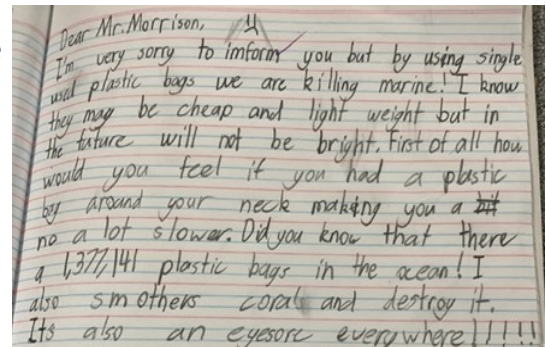 Dear Mr. Morrison,
I'm very sorry to imform you but by using single
used plastic bags we are killing marine! I know
they may be cheap and light weight but in
the future will not be bright. First of all how
would you feel if you had a plastic
bag around your neck making you a
no a lot slower. Did you know that there
a 1,377,141 plastic bags in the ocean! I
also smothers coral and destroy it.
Its also an eyesore everywhere!!!!!